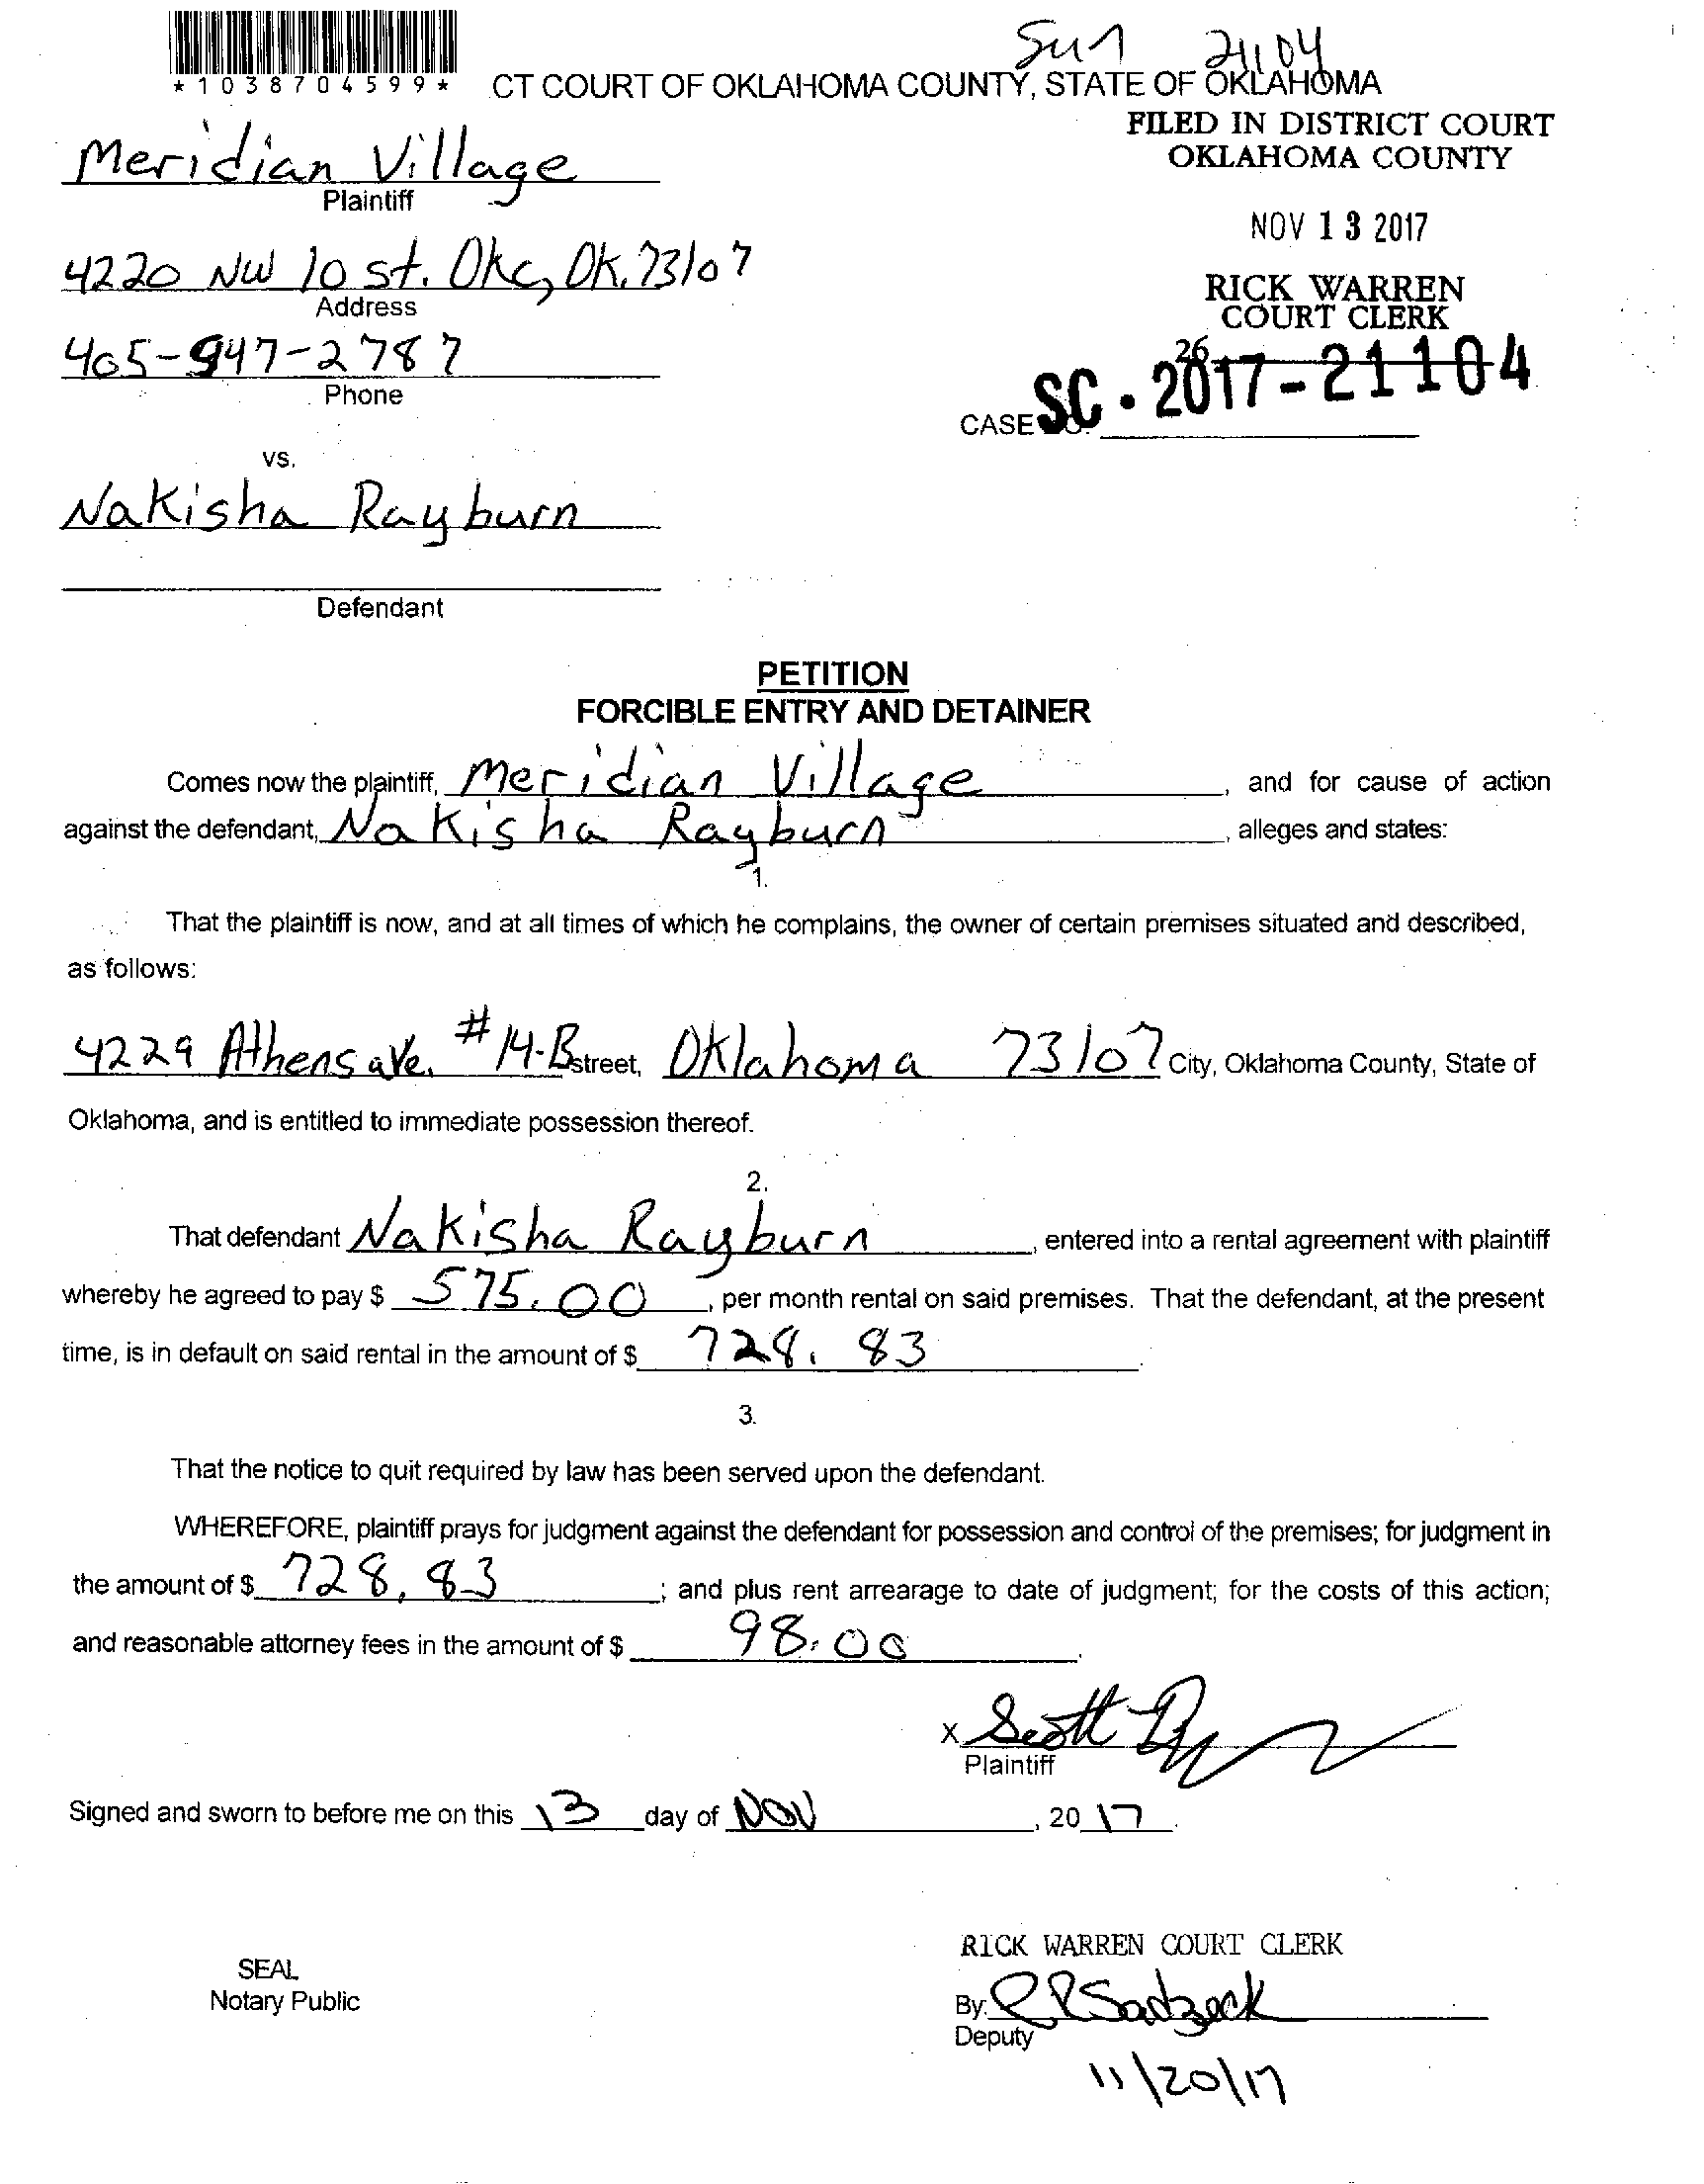 Sun 21104
*1038704599*
CT COURT OF OKLAHOMA COUNTY, STATE OF OKLAHOMA
FILED IN DISTRICT COURT
OKLAHOMA COUNTY
Meridian Village
Plaintiff
NOV 13 2017
4220 NW 10 st. Okc, OK. 73107
Address
RICK WARREN
COURT CLERK
405-947-2787
Phone
26
CASE SC - 2017-21104
vs.
Nakisha Rayburn
Defendant
PETITION
FORCIBLE ENTRY AND DETAINER
Comes now the plaintiff, Meridian Village, and for cause of action
against the defendant, Nakisha Rayburn, alleges and states:
1.
That the plaintiff is now, and at all times of which he complains, the owner of certain premises situated and described,
as follows:
4229 Athens ave. #14-B street, Oklahoma 73107 City, Oklahoma County, State of
Oklahoma, and is entitled to immediate possession thereof.
2.
That defendant Nakisha Rayburn, entered into a rental agreement with plaintiff
whereby he agreed to pay $ 575.00, per month rental on said premises. That the defendant, at the present
time, is in default on said rental in the amount of $ 728.83.
3.
That the notice to quit required by law has been served upon the defendant.
WHEREFORE, plaintiff prays for judgment against the defendant for possession and control of the premises; for judgment in
the amount of $ 728.83; and plus rent arrearage to date of judgment; for the costs of this action;
and reasonable attorney fees in the amount of $ 98.00.
X Scott
Plaintiff
Signed and sworn to before me on this 13 day of Nov, 20 17.
RICK WARREN COURT CLERK
SEAL
Notary Public
By:
Deputy
11/20/17